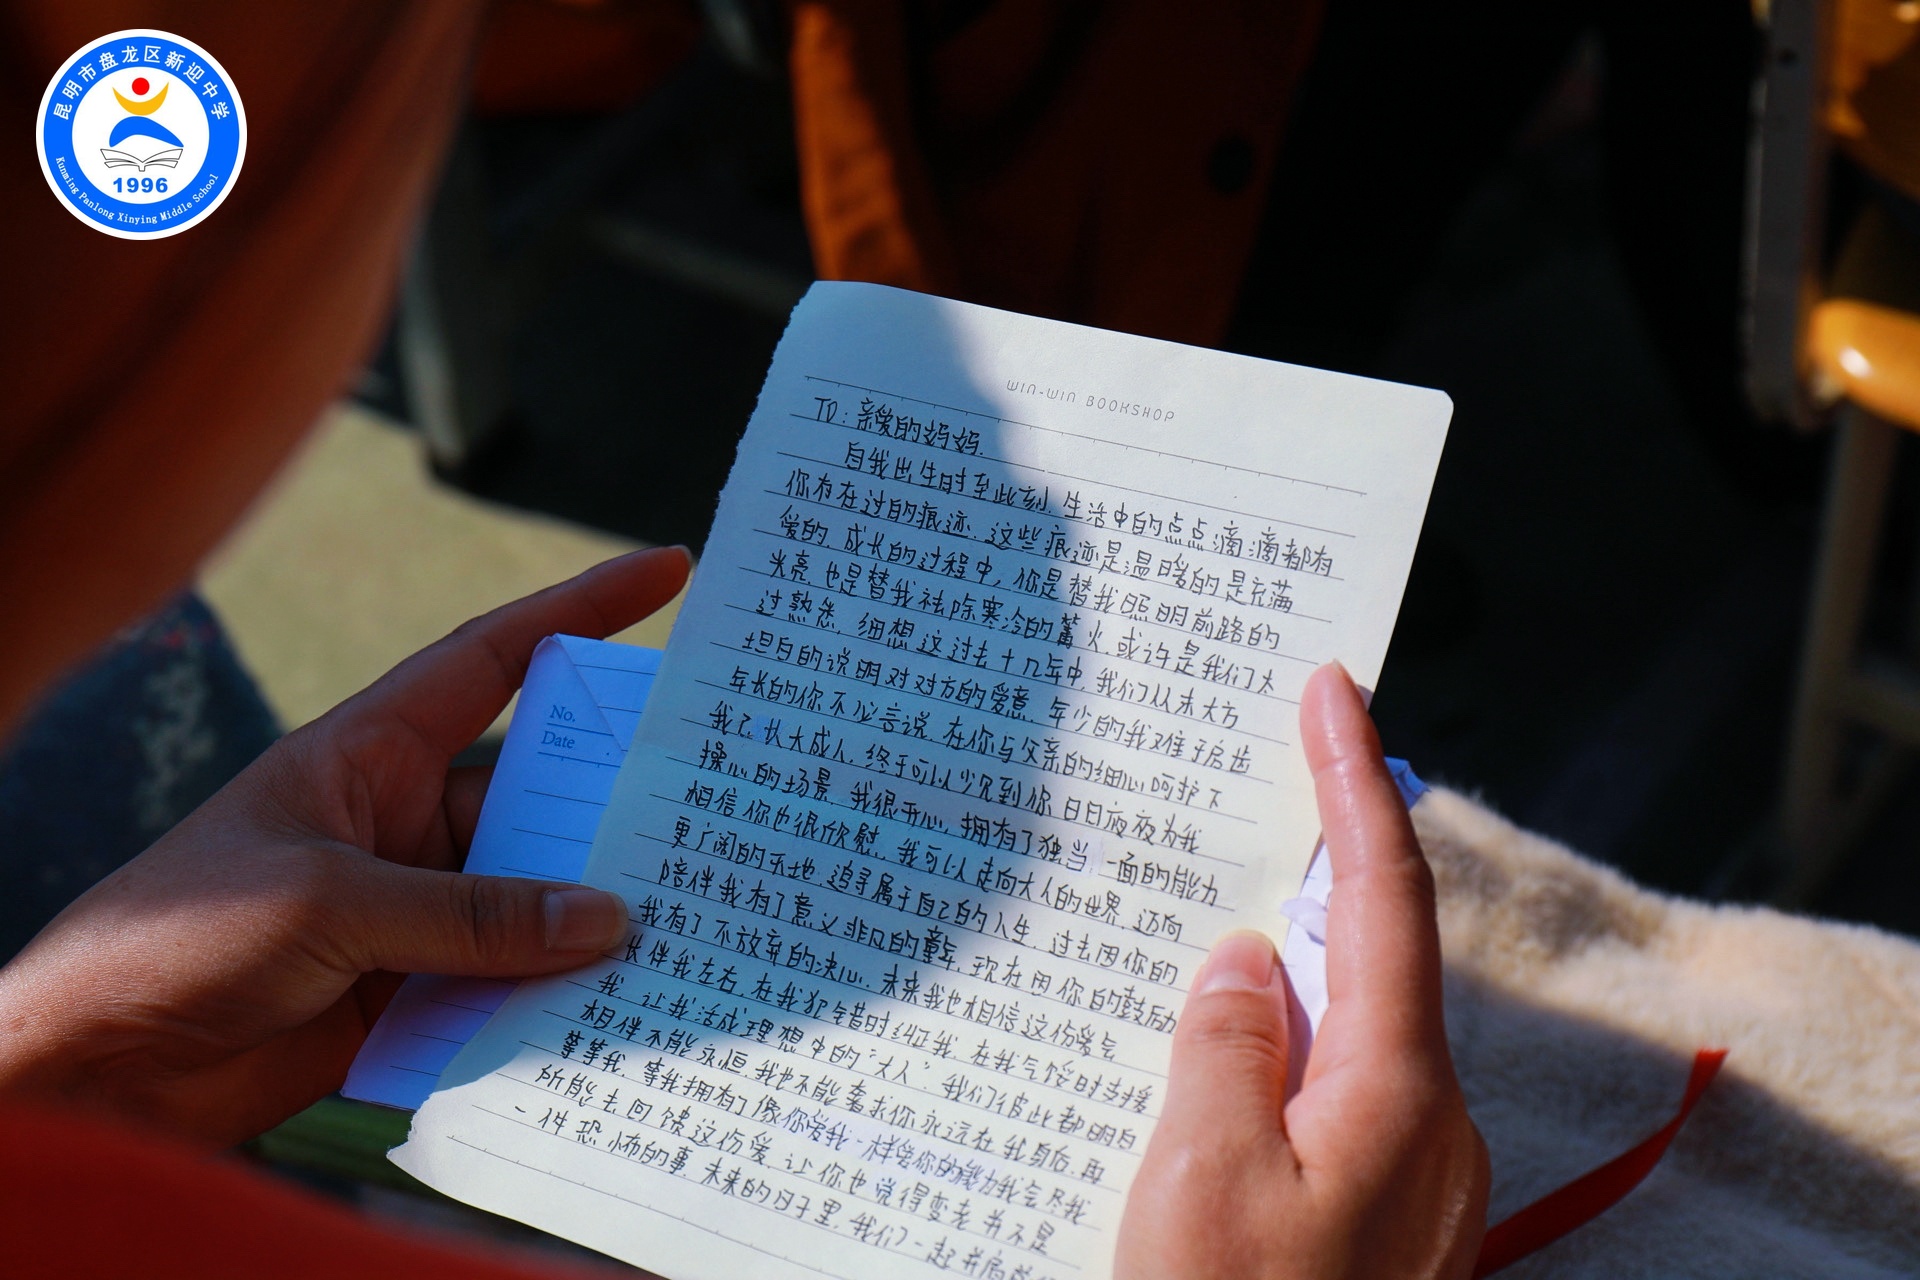 昆明市盘龙区新迎中学
1996
Kunming Panlong Xinying Middle School
WIN-WIN BOOKSHOP
TO:亲爱的妈妈.
自我出生时至此刻,生活中的点点滴滴都有
你存在过的痕迹,这些痕迹是温暖的是充满
爱的,成长的过程中,你是替我照明前路的
光亮,也是替我祛除寒冷的篝火,或许是我们太
过熟悉,细想这过去十几年中,我们从未大方
坦白的说明对对方的爱意,年少的我难于启齿
年长的你不必言说,在你与父亲的细心呵护下
我已长大成人,终于可以少见到你日日夜夜为我
操心的场景,我很开心,拥有了独当一面的能力
相信你也很欣慰,我可以走向大人的世界,迈向
更广阔的天地,追寻属于自己的人生,过去因你的
陪伴我有了意义非凡的童年,现在因你的鼓励
我有了不放弃的决心,未来我也相信这份爱会
长伴我左右,在我犯错时纠正我,在我气馁时支援
我,让我活成理想中的"大人",我们彼此都明白
相伴不能永恒,我也不能奢求你永远在我身后,再
等等我,等我拥有了像你爱我一样爱你的能力我会尽我
所能去回馈这份爱,让你也觉得变老并不是
一件恐怖的事,未来的日子里,我们一起并肩
No.
Date